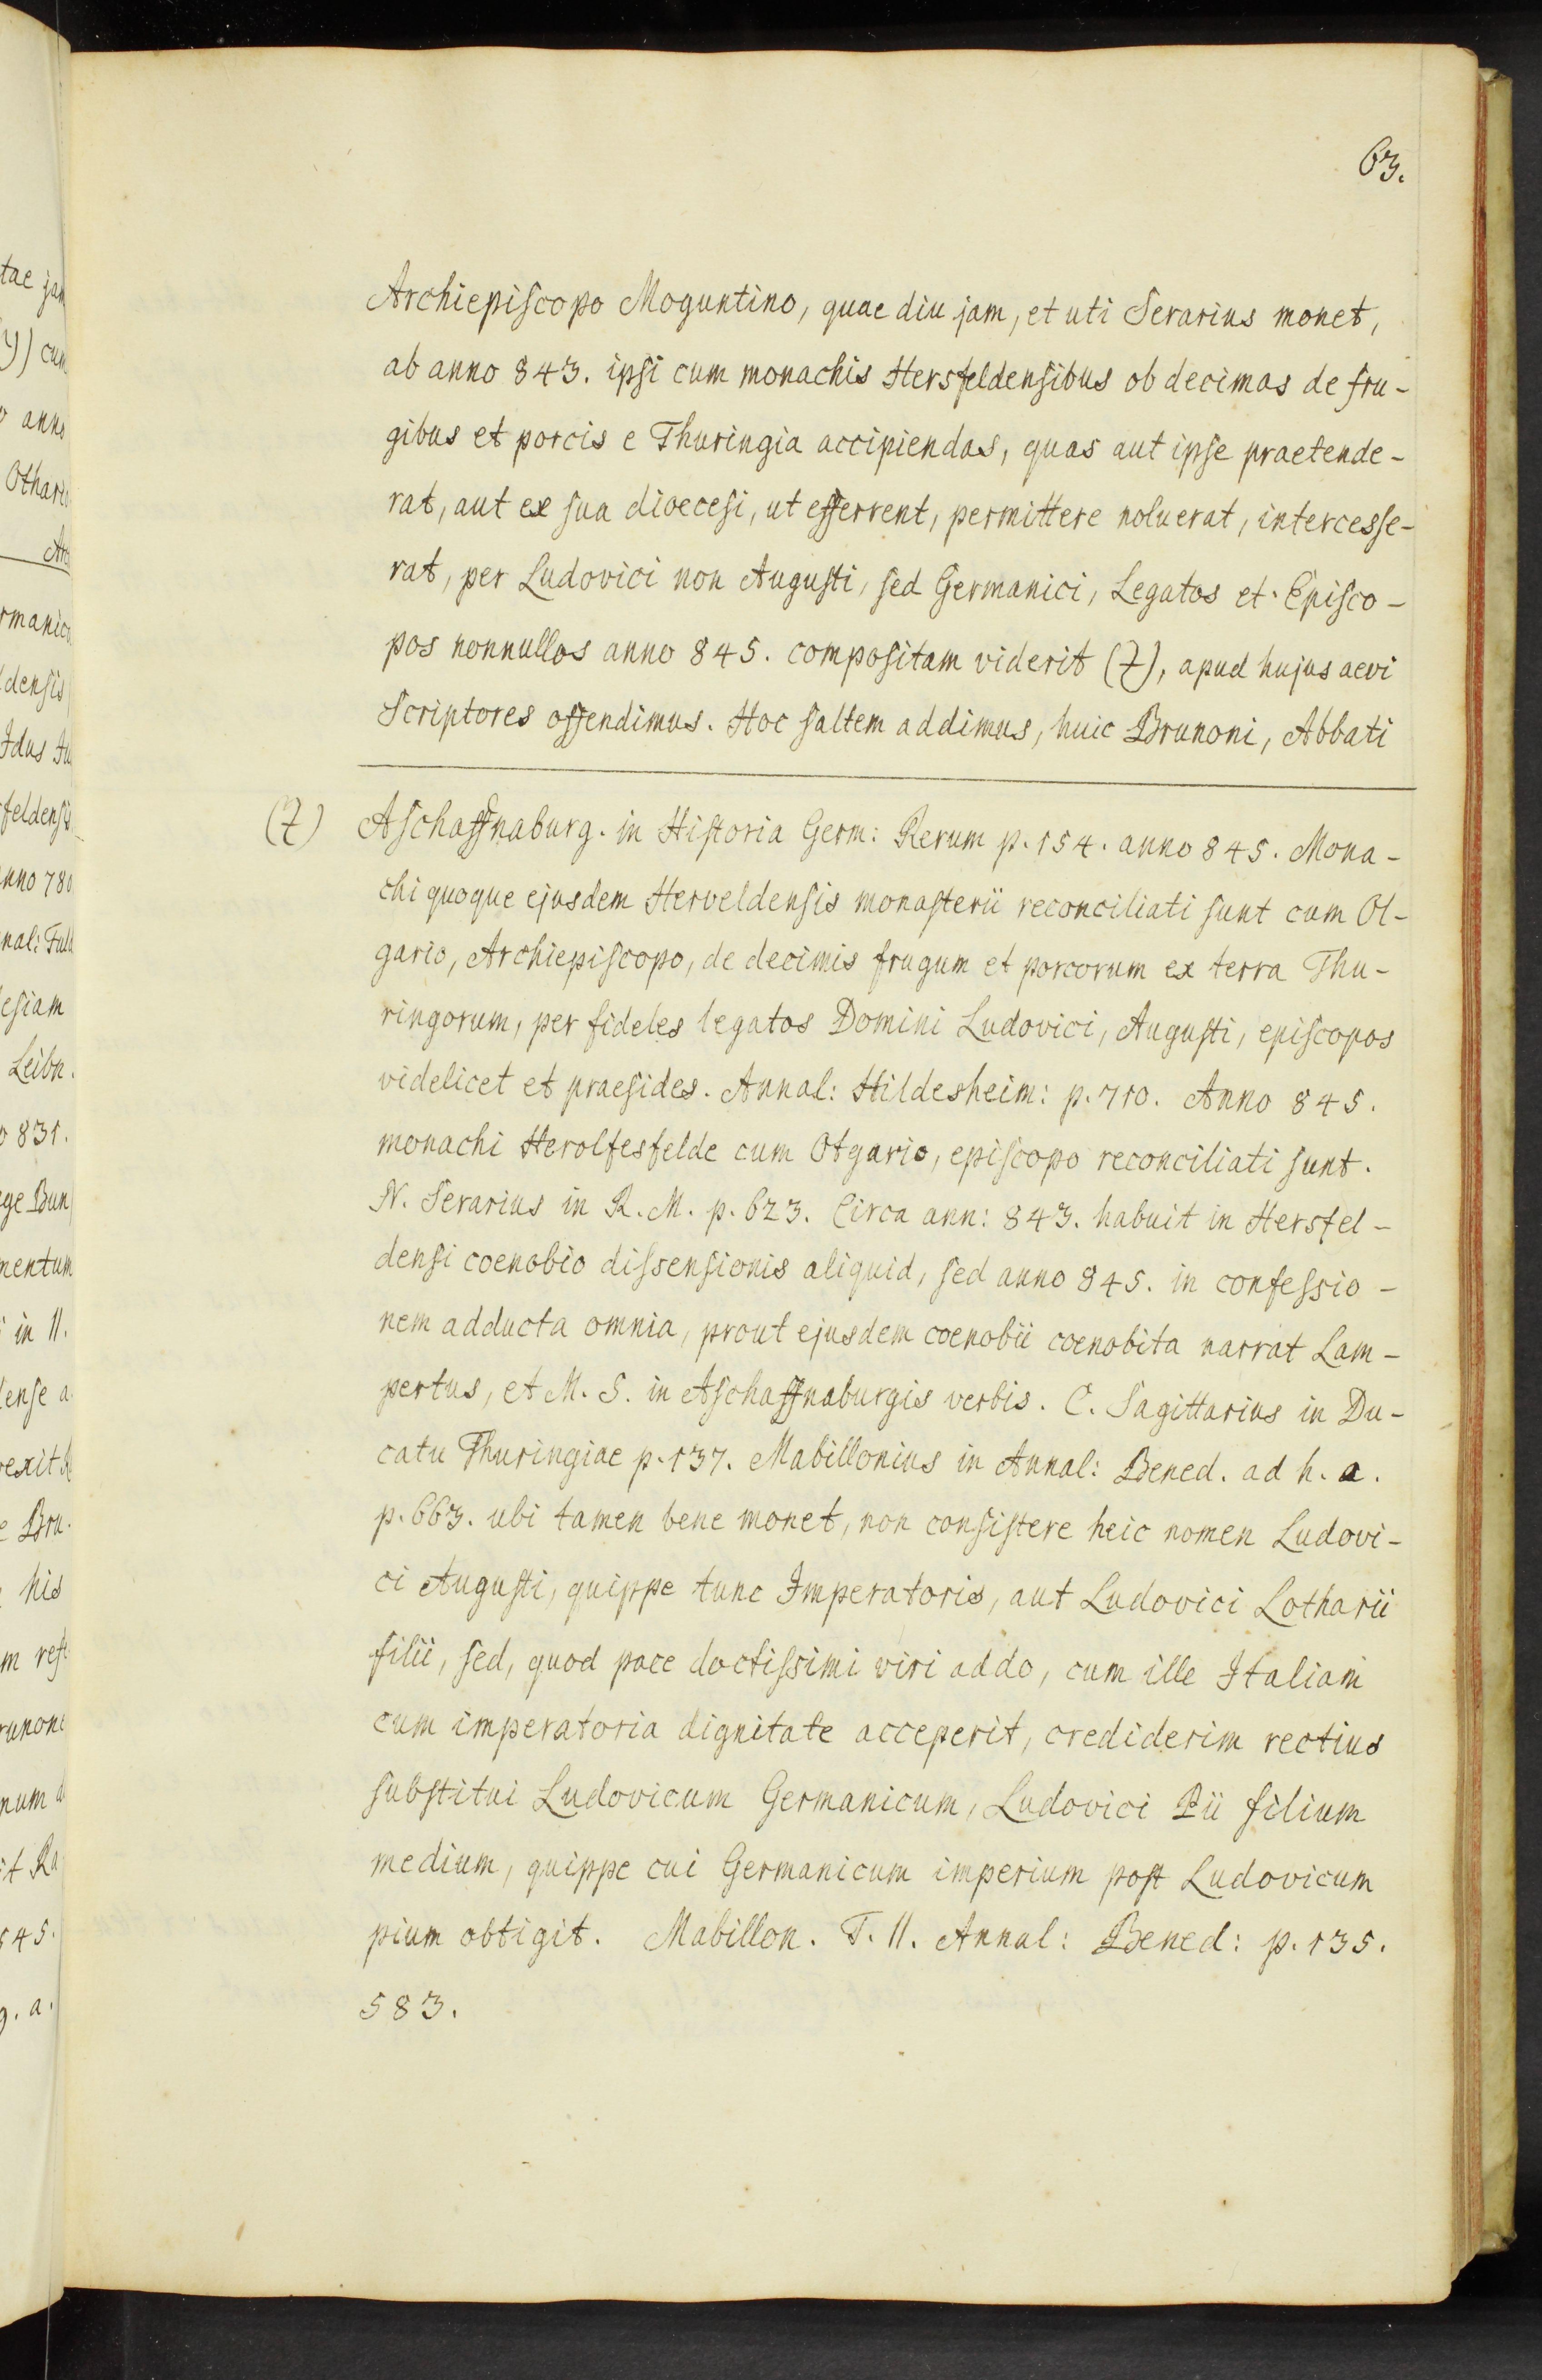 63.
Archiepiscopo Moguntino, quae diu jam, et uti Serarius monet,
ab anno 843. ipsi cum monachis Hersfeldensibus ob decimas de fru-
gibus et porcis e Thuringia accipiendas, quas aut ipse praetende-
rat, aut ex sua dioecesi, ut efferrent, permittere noluerat, intercesse-
rat, per Ludovici non Augusti, sed Germanici, Legatos et Episco-
pos nonnullos anno 845. compositam viderit (Z), apud hujus aevi
Scriptores offendimus. Hoc saltem addimus, huic Brunoni, Abbati
(Z) Aschaffnaburg. in Historia Germ: Rerum p. 154. anno 845. Mona-
chi quoque ejusdem Herveldensis monasterii reconciliati sunt cum Ot-
gario, Archiepiscopo, de decimis frugum et porcorum ex terra Thu-
ringorum, per fideles legatos Domini Ludovici, Augusti, episcopos
videlicet et praesides. Annal: Hildesheim: p. 710. Anno 845.
monachi Herolfesfelde cum Otgario, episcopo reconciliati sunt.
N. Serarius in R. M. p. 623. Circa ann: 843. habuit in Hersfel-
densi coenobio dissensionis aliquid, sed anno 845. in confessio-
nem adducta omnia, prout ejusdem coenobii coenobita narrat Lam-
pertus, et M. S. in Aschaffnaburgis verbis. C. Sagittarius in Du-
catu Thuringiae p. 137. Mabillonius in Annal: Bened. ad h. a.
p. 663. ubi tamen bene monet, non consistere heic nomen Ludovi-
ci Augusti, quippe tunc Imperatoris, aut Ludovici Lotharii
filii, sed, quod pace doctissimi viri addo, cum ille Italiam
cum imperatoria dignitate acceperit, crediderim rectius
substitui Ludovicum Germanicum, Ludovici Pii filium
medium, quippe cui Germanicum imperium post Ludovicum
pium obtigit. Mabillon. T. II. Annal: Bened: p. 135.
583.